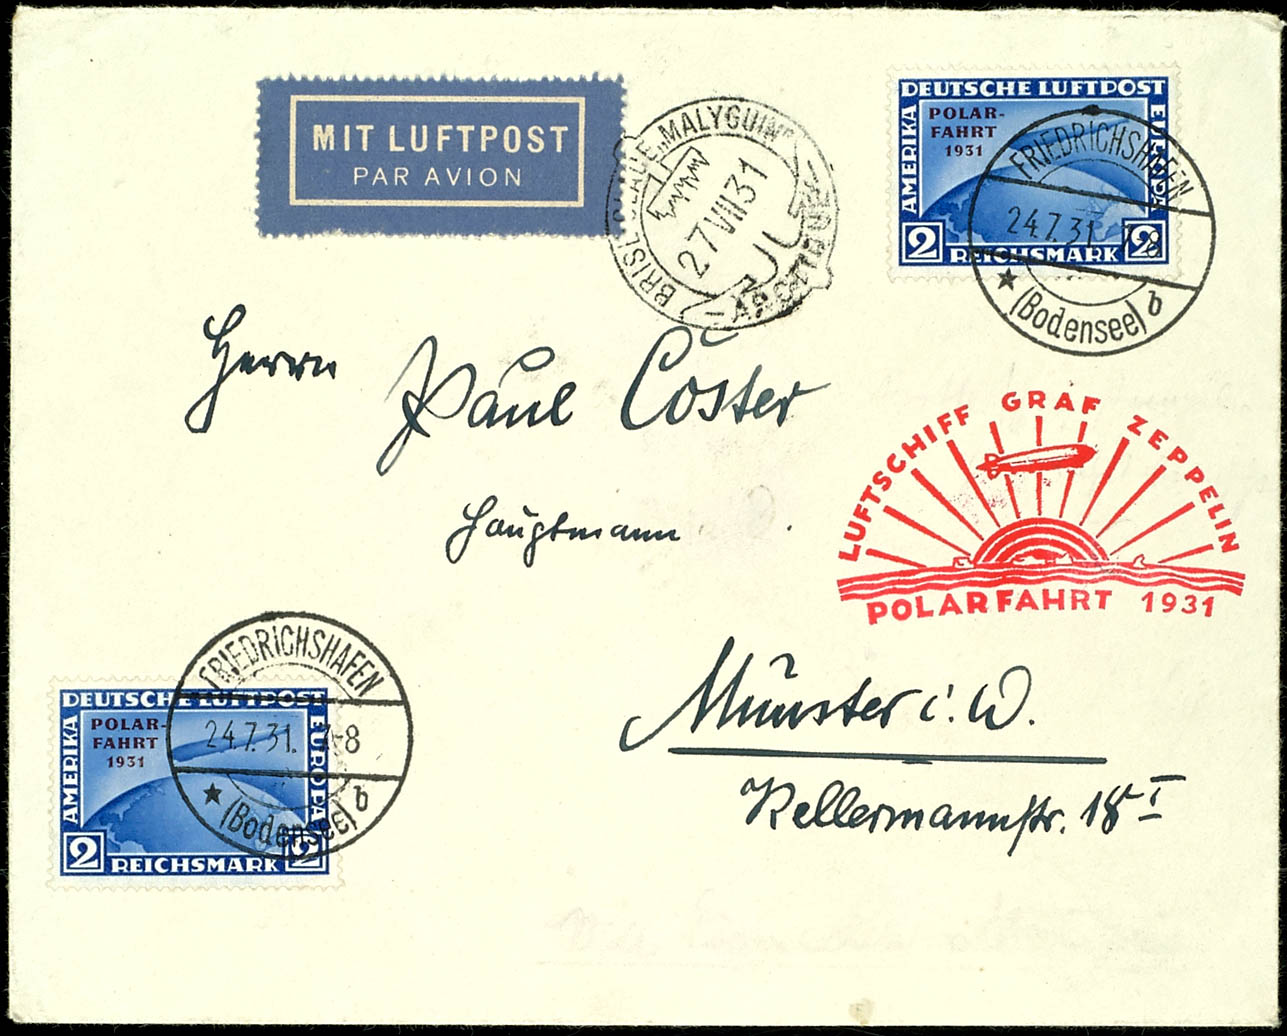 MIT LUFTPOST
PAR AVION
BRISE GLACE „MALYGUIN"
27 VII 31
DEUTSCHE LUFTPOST
AMERIKA
POLAR-
FAHRT
1931
EUROPA
2 REICHSMARK 2
FRIEDRICHSHAFEN
24.7.31. 7-8
(Bodensee) b
Herrn Paul Cöster
Hauptmann
LUFTSCHIFF GRAF ZEPPELIN
POLARFAHRT 1931
Münster i. W.
Kellermannstr. 18 I
FRIEDRICHSHAFEN
24.7.31. 7-8
(Bodensee) b
DEUTSCHE LUFTPOST
AMERIKA
POLAR-
FAHRT
1931
EUROPA
2 REICHSMARK 2